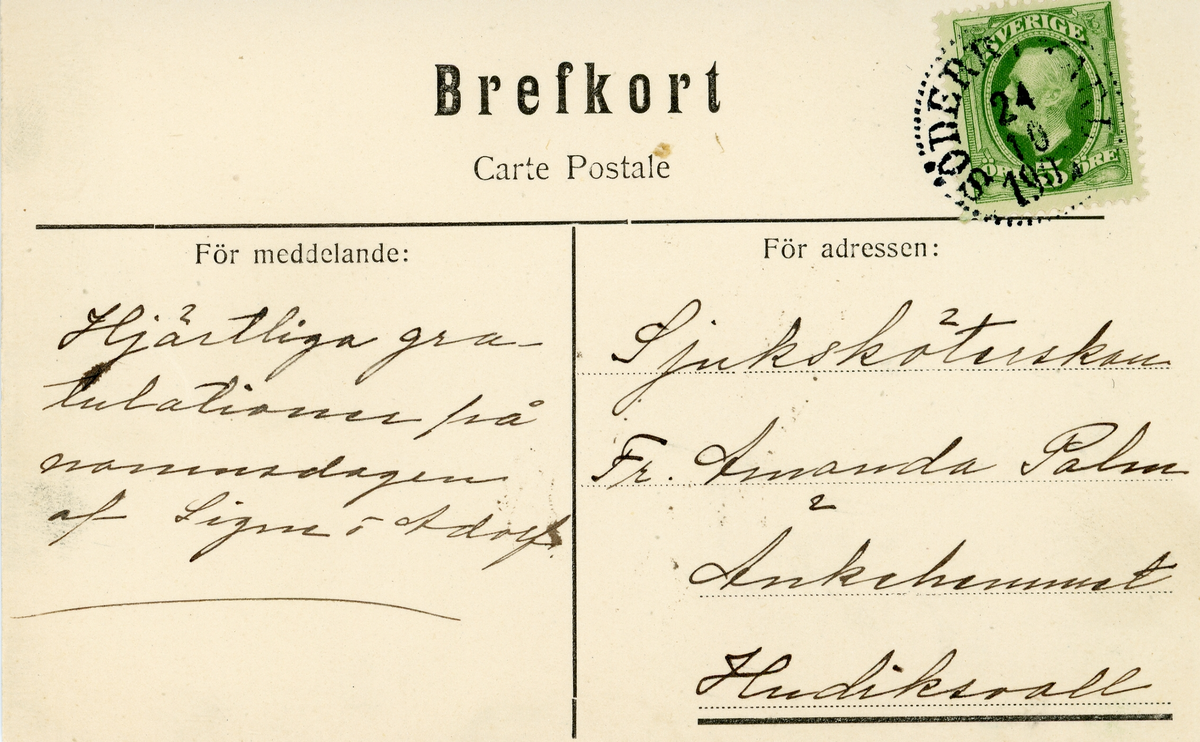 Brefkort
Carte Postale
SVERIGE
ÖRE
24
10
För meddelande:
Hjärtliga gra-
tulationer på
namnsdagen
af Signe o Adolf.
För adressen:
Sjuksköterskan
Fr. Amanda Palm
Änkehemmet
Hudiksvall